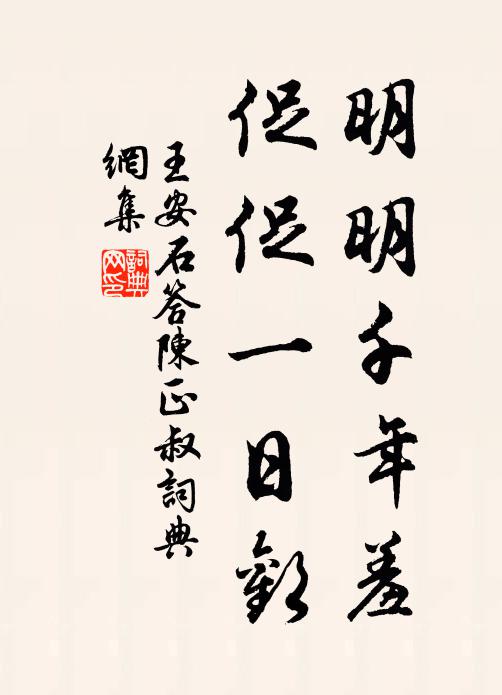 明明千年羞
促促一日歡
王安石答陳正叔詞典
網集
詞典
网印